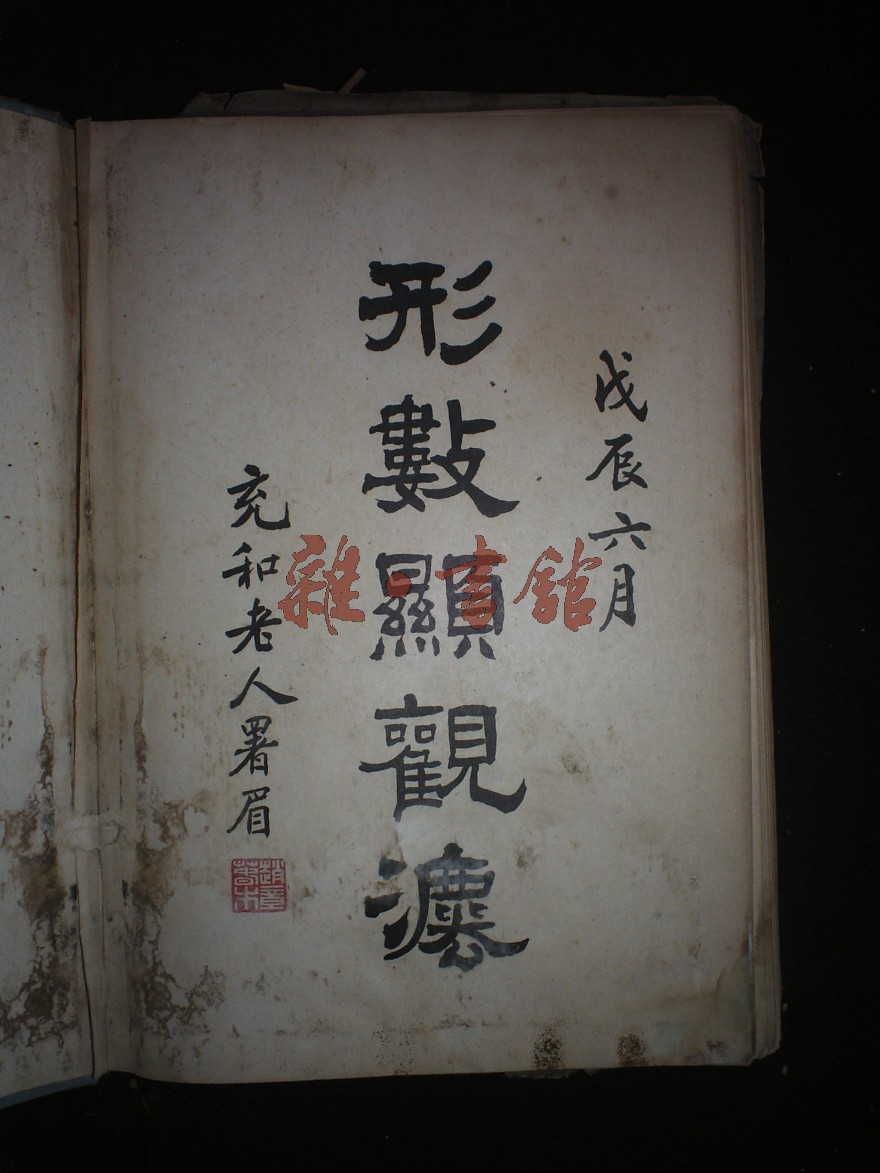 戊辰六月
形數顯觀灋
充和老人署眉
雜·書館